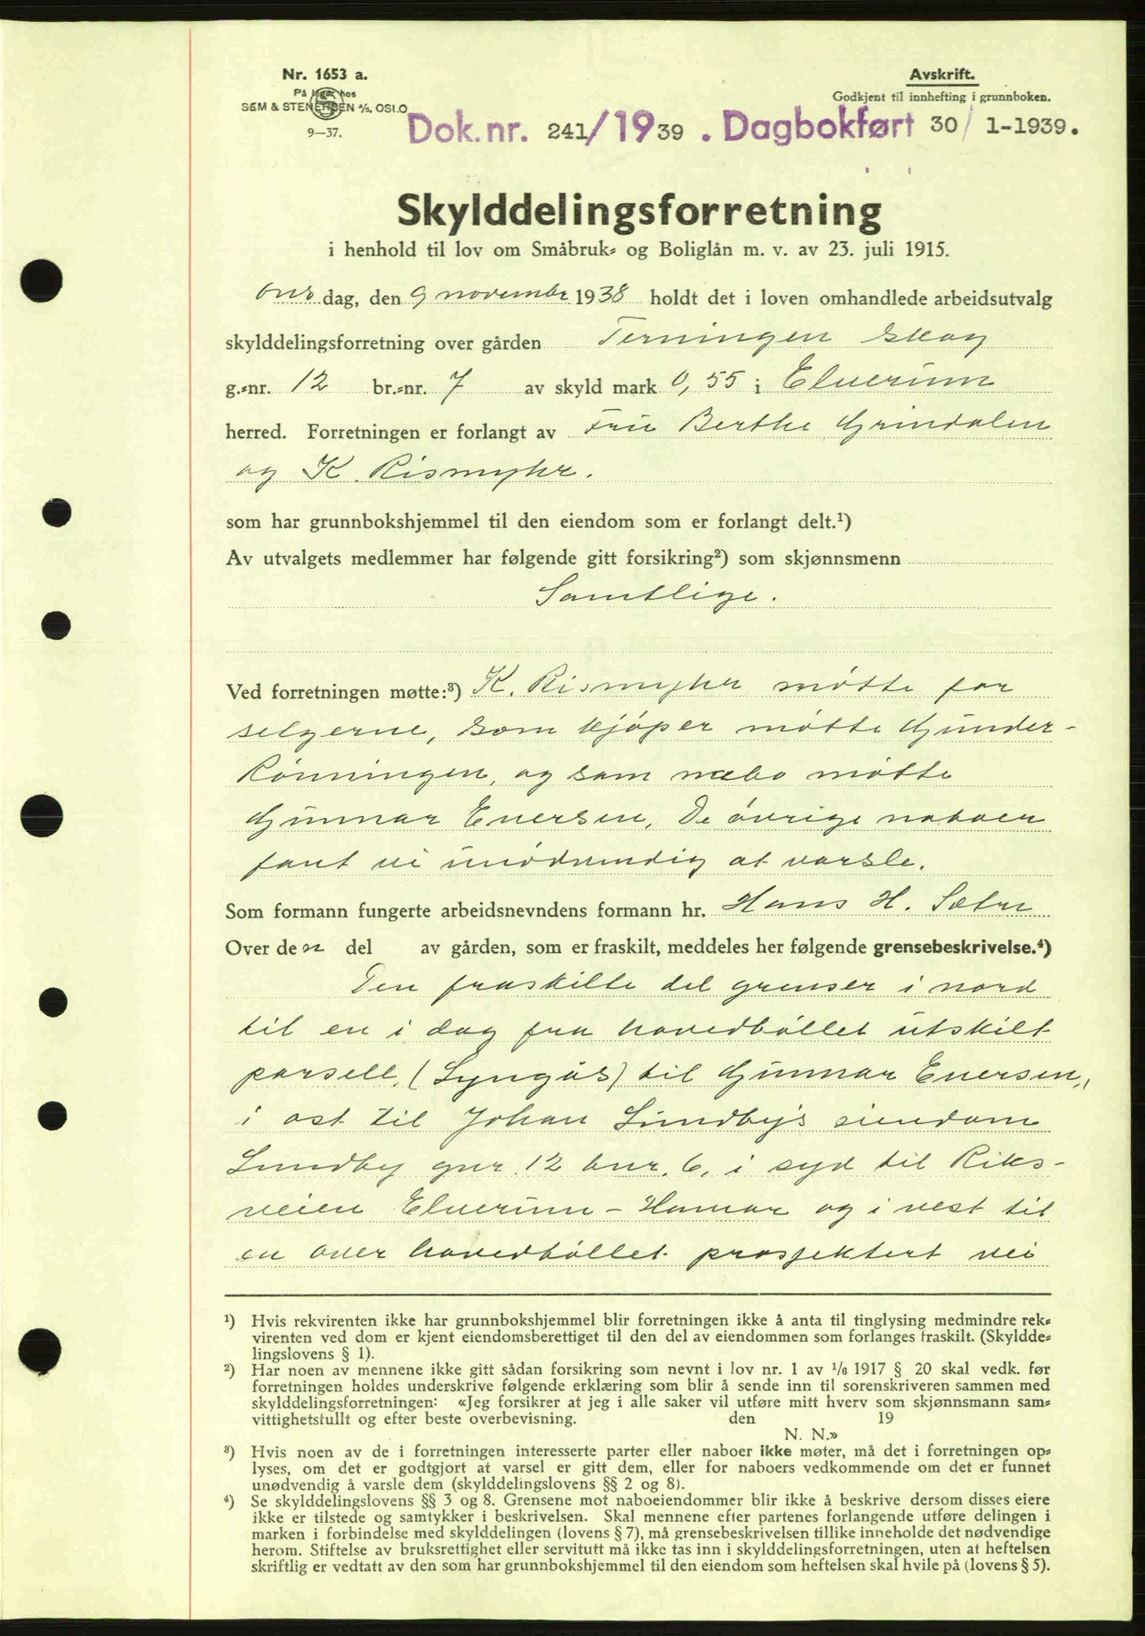 Nr. 1653 a.
På lager hos
SEM & STENERSEN A/S. OSLO
9—37.
Avskrift.
Godkjent til innhefting i grunnboken.
Dok. nr. 241/1939. Dagbokført 30/1-1939.
Skylddelingsforretning
i henhold til lov om Småbruk- og Boliglån m. v. av 23. juli 1915.
Onsdag, den 9 november 1938 holdt det i loven omhandlede arbeidsutvalg
skylddelingsforretning over gården Terningen skog
g.-nr. 12 br.-nr. 7 av skyld mark 0,55 i Elverum
herred. Forretningen er forlangt av Fru Berthe Grindalen
og K. Rismyhr.
som har grunnbokshjemmel til den eiendom som er forlangt delt.¹)
Av utvalgets medlemmer har følgende gitt forsikring²) som skjønnsmenn
Samtlige.
Ved forretningen møtte:³) K. Rismyhr møtte for
selgerne, som kjøper møtte Gunder
Rønningen, og som nabo møtte
Gunnar Enersen, De øvrige naboer
fant vi unødvendig at varsle.
Som formann fungerte arbeidsnevndens formann hr. Hans H. Sætre
Over den del av gården, som er fraskilt, meddeles her følgende grensebeskrivelse.⁴)
Den fraskilte del grenser i nord
til en i dag fra hovedbøllet utskilt
parsell, (Lyngås) til Gunnar Enersen,
i øst til Johan Lundby's eiendom
Lundby gnr. 12 bnr. 6, i syd til Riks-
veien Elverum - Hamar og i vest til
en over hovedbøllet prosjektert vei
¹) Hvis rekvirenten ikke har grunnbokshjemmel blir forretningen ikke å anta til tinglysing medmindre rek-
virenten ved dom er kjent eiendomsberettiget til den del av eiendommen som forlanges fraskilt. (Skyldde-
lingslovens § 1).
²) Har noen av mennene ikke gitt sådan forsikring som nevnt i lov nr. 1 av 1/6 1917 § 20 skal vedk. før
forretningen holdes underskrive følgende erklæring som blir å sende inn til sorenskriveren sammen med
skylddelingsforretningen: «Jeg forsikrer at jeg i alle saker vil utføre mitt hverv som skjønnsmann sam-
vittighetsfullt og efter beste overbevisning. den 19
N. N.»
³) Hvis noen av de i forretningen interesserte parter eller naboer ikke møter, må det i forretningen op-
lyses, om det er godtgjort at varsel er gitt dem, eller for naboers vedkommende om det er funnet
unødvendig å varsle dem (skylddelingslovens §§ 2 og 8).
⁴) Se skylddelingslovens §§ 3 og 8. Grensene mot naboeiendommer blir ikke å beskrive dersom disses eiere
ikke er tilstede og samtykker i beskrivelsen. Skal mennene efter partenes forlangende utføre delingen i
marken i forbindelse med skylddelingen (lovens § 7), må grensebeskrivelsen tillike inneholde det nødvendige
herom. Stiftelse av bruksrettighet eller servitutt må ikke tas inn i skylddelingsforretningen, uten at heftelsen
skriftlig er vedtatt av den som har grunnbokshjemmel til den eiendom som heftelsen skal hvile på (lovens § 5).